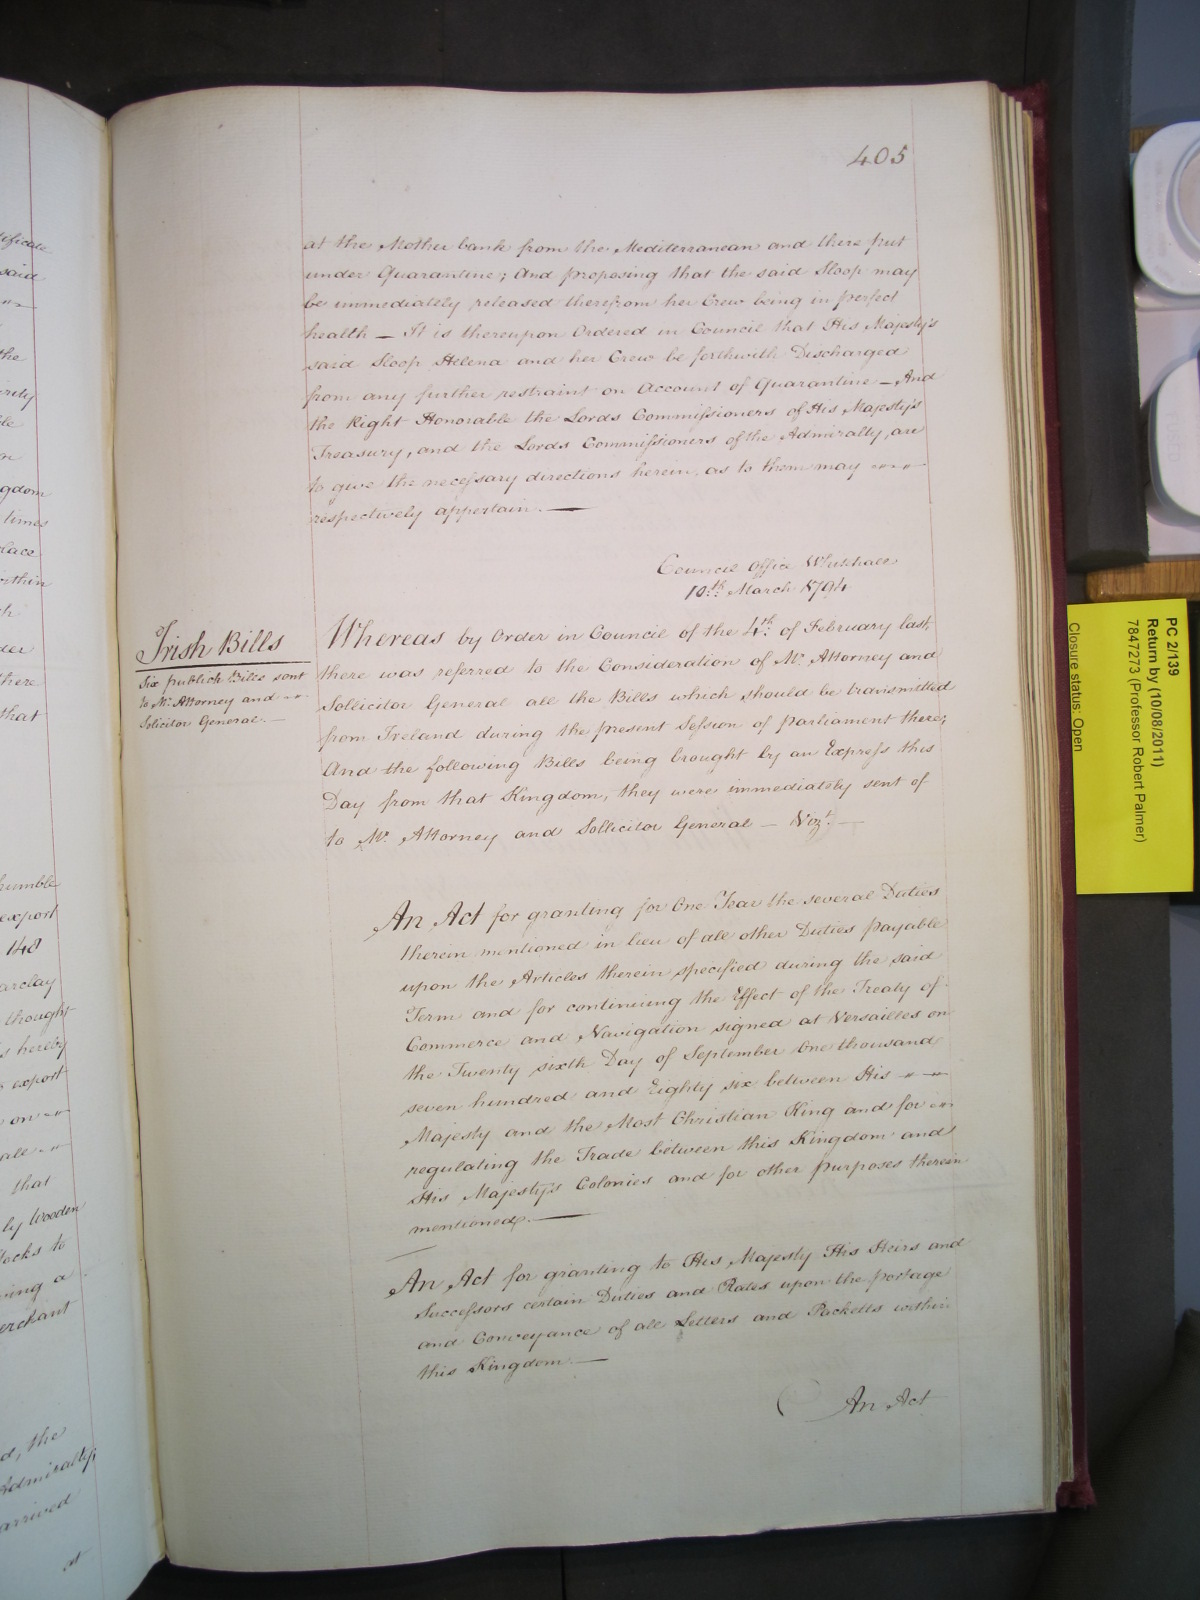 405
at the Mother bank from the Mediterranean and there put
under Quarantine; And proposing that the said Sloop may
be immediately released therefrom her Crew being in perfect
health — It is thereupon Ordered in Council that His Majesty's
said Sloop Helena and her Crew be forthwith Discharged
from any further restraint on Account of Quarantine — And
the Right Honorable the Lords Commissioners of His Majesty's
Treasury, and the Lords Commissioners of the Admiralty, are
to give the necessary directions herein, as to them may
respectively appertain. —
Council Office Whitehall
10th March 1794
Irish Bills
Six publick Bills sent
to Mr. Attorney and
Solicitor General. —
Whereas by Order in Council of the 4th of February last,
there was referred to the Consideration of Mr. Attorney and
Sollicitor General all the Bills which should be transmitted
from Ireland during the present Session of parliament there;
And the following Bills being brought by an Express this
Day from that Kingdom, they were immediately sent of
to Mr. Attorney and Sollicitor General — Vizt. —
An Act for granting for One Year the several Duties
therein mentioned in lieu of all other Duties payable
upon the Articles therein specified during the said
Term and for continuing the Effect of the Treaty of
Commerce and Navigation signed at Versailles on
the Twenty sixth Day of September One thousand
seven hundred and Eighty six between His
Majesty and the Most Christian King and for
regulating the Trade between this Kingdom and
His Majesty's Colonies and for other purposes therein
mentioned. —
An Act for granting to His Majesty His Heirs and
Successors certain Duties and Rates upon the portage
and Conveyance of all Letters and Packetts within
this Kingdom. —
An Act
said
the
gdom
times
lace
within
there
that
humble
export
148
arclay
thought
s hereby
export
on
ale
that
ly Wooden
ving a
erchant
d, the
Admiralty,
arrived
at
PC 2/139
Return by (10/08/2011)
7847273 (Professor Robert Palmer)
Closure status: Open